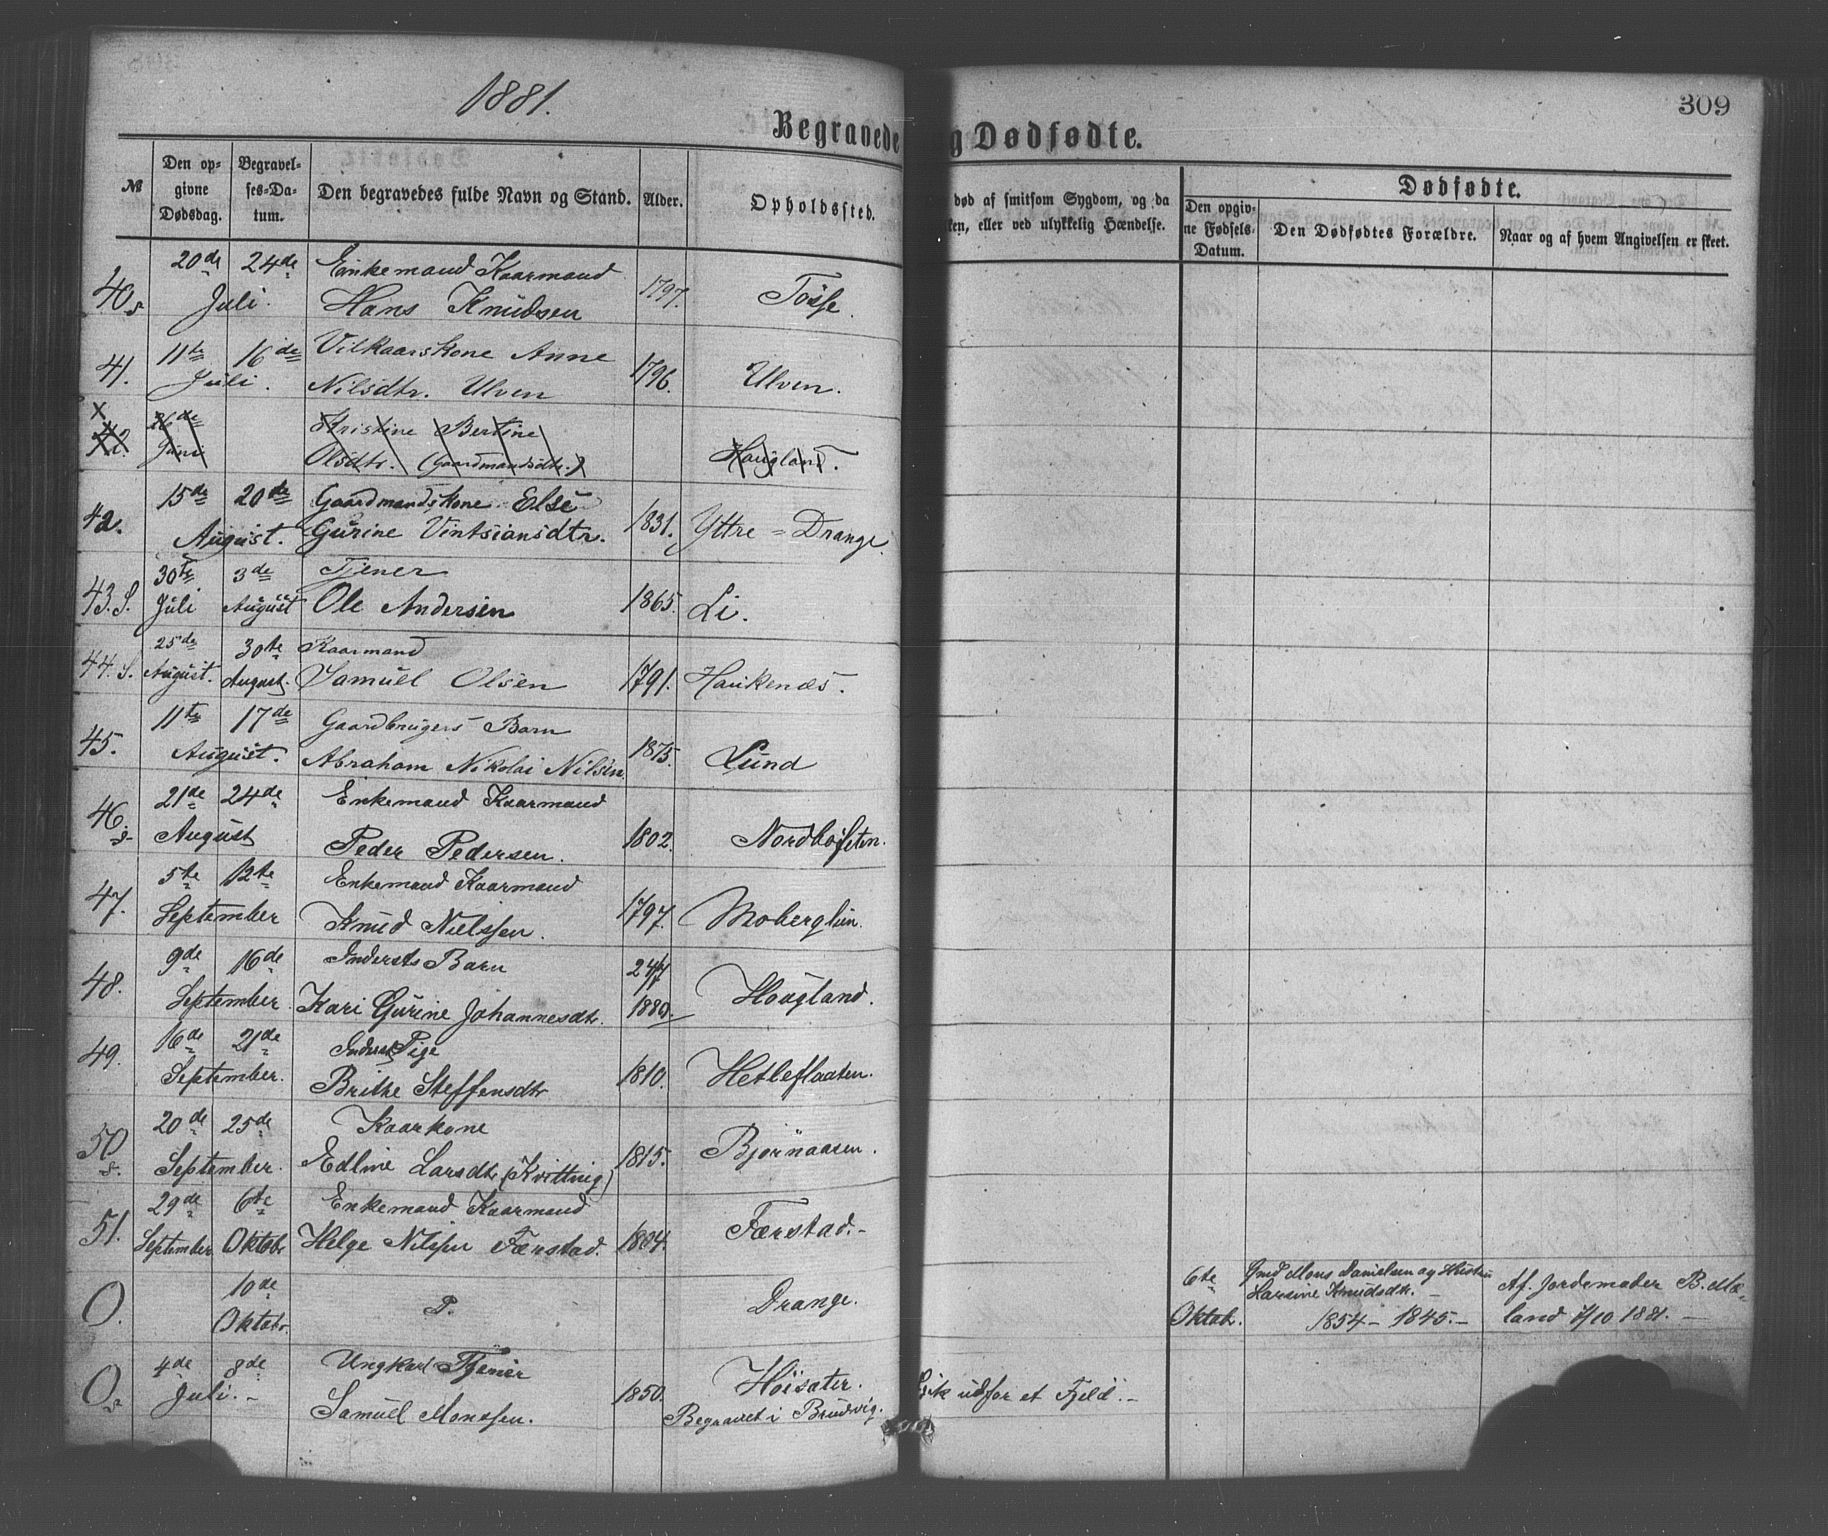 1881.
309
Begravede og Dødfødte.
№
Den op-
givne
Dødsdag.
Begravel-
ses-Da-
tum.
Den begravedes fulde Navn og Stand.
Alder.
Opholdssted.
død af smitsom Sygdom, og da
ken, eller ved ulykkelig Hændelse.
Dødfødte.
Den opgiv-
ne Fødsels-
Datum.
Den Dødfødtes Forældre.
Naar og af hvem Angivelsen er skeet.
20de 24de Enkemand Kaarmand
40 s. Juli. Hans Knudsen 1797. Tøsse.
11te 16de Vilkaarskone Anne
41. Juli. Nilsdtr. Ulven 1796. Ulven.
X 26de Kristine Bertine
42. Juni Olsdtr. (Gaardmandsdtr.) Haugland.
15de 20de Gaardmandskone Else
42. August. Gurine Vintsiansdtr. 1831. Yttre = Drange.
30te 3de Tjener
43. S. Juli August Ole Andersen 1865. Li.
25de 30te Kaarmand
44. S. August. August. Samuel Olsen 1791. Haukenæs.
11te 17de Gaardbrugers Barn
45. August. Abraham Nikolai Nilsen 1875. Lund
21de 24de Enkemand Kaarmand
46. s. August Peder Pedersen. 1802.
5te 12te Enkemand Kaarmand
47. September Knud Nielssen. 1797. Moberglien.
9de 16de Indersts Barn 24/7
48. September. Kari Gurine Johannesdtr. 1880. Hougland.
16de 21de Inderst Pige
49. September. Brithe Steffensdtr 1810. Hetleflaaten.
20de 25de Kaarkone
50 s. September. Edline Larsdtr (Kvittvig) 1815. Bjørnaasen.
29de 6te Enkemand Kaarmand
51. September Oktobr Helge Nilssen Færstad. 1804. Færstad.-
10de
O. Oktobr. P. Drange.
6te Gmd Mons Danielsen og Hustru
Oktobr. Larsine Knudsdtr. -
1854 - 1845. -
Af Jordemoder B. Mæ-
land 7/10 1881. -
4de 8de Ungkarl Tjener
O. s. Juli. - Samuel Monssen. 1850. Høisæter.
Begravet i Brudvig.
Gik udfor et Fjeld. -